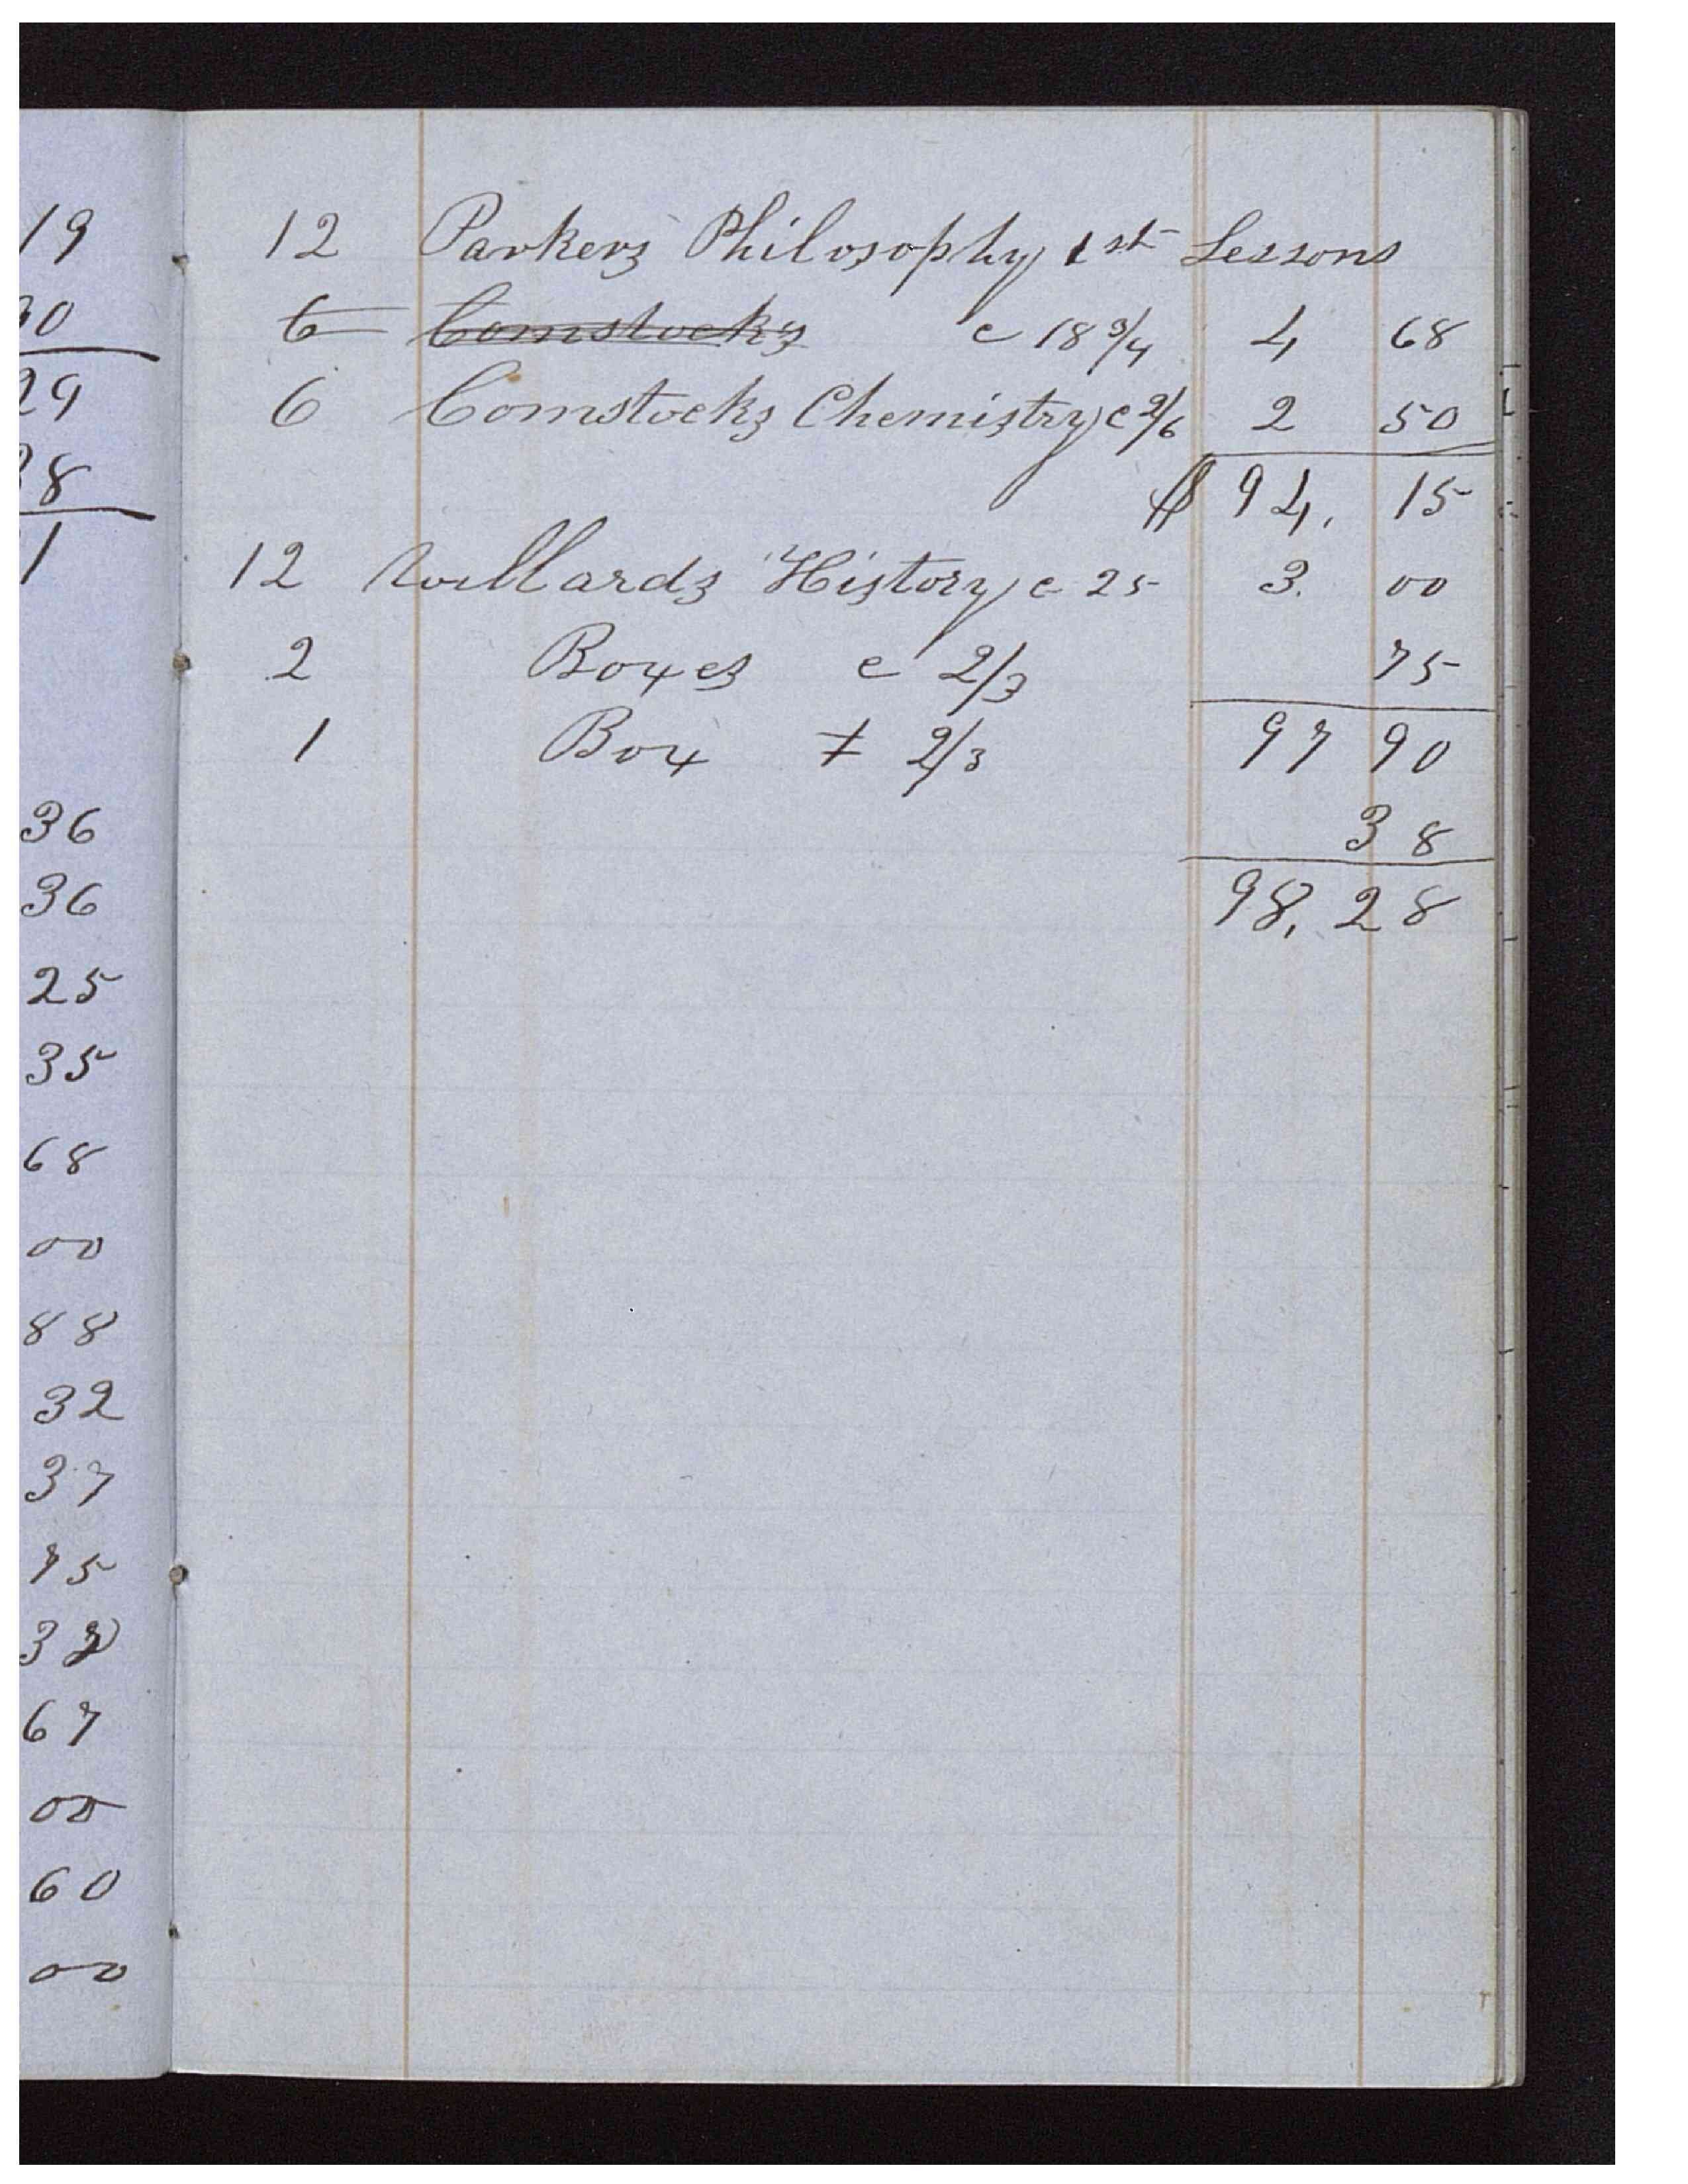 19
12 Parkers Philosophy 1st Lessons
6 Comstocks c 18 3/4 4 68
29
6 Comstocks Chemistry c 2/6 2 50
8
$ 94, 15
1
12 Willards History c 25 3. 00
2 Boxes c 2/3 75
1 Box + 2/3 97 90
36
38
36
98, 28
25
35
68
00
88
32
37
75
67
00
60
00